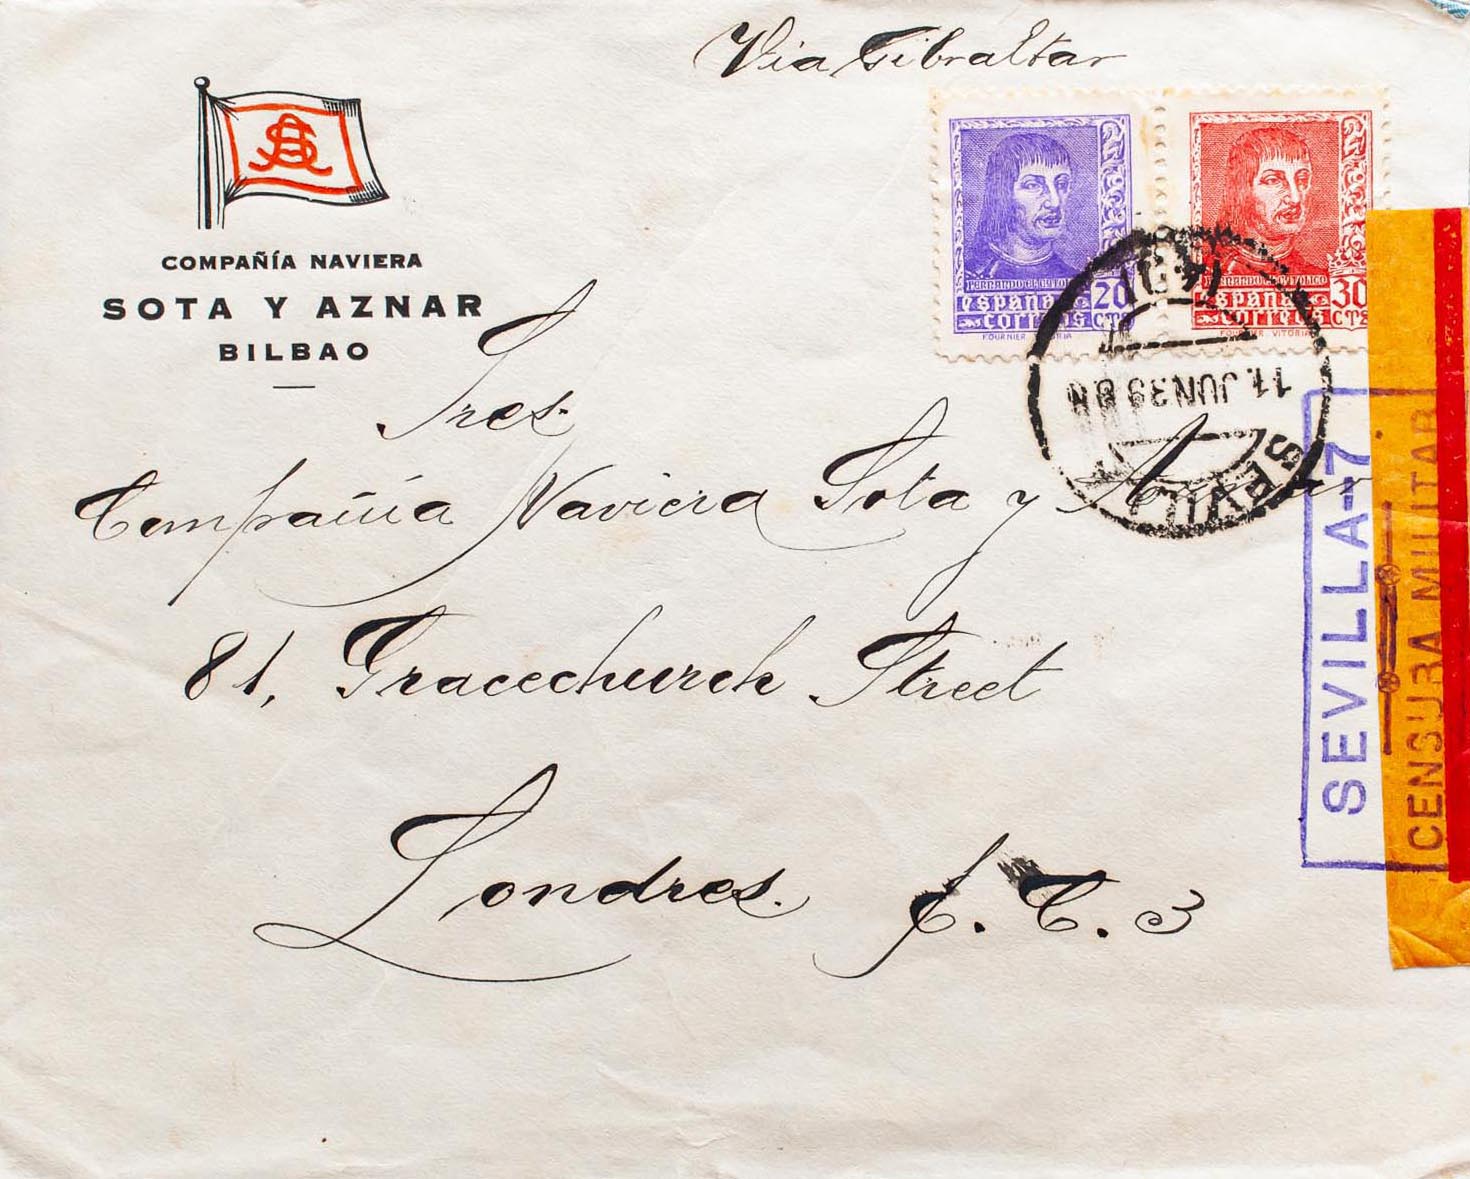 Via Gibraltar
COMPAÑÍA NAVIERA
SOTA Y AZNAR
BILBAO
FERNANDO EL CATOLICO
ESPAÑA 20
CORREOS CTS
FOURNIER VITORIA
FERNANDO EL CATOLICO
ESPAÑA 30
CORREOS CTS
FOURNIER VITORIA
11.JUN39
SEVILLA
Sres.
Compañia Naviera Sota y Aznar
81, Gracechurch Street
Londres. E.C.3
SEVILLA-7
CENSURA MILITAR